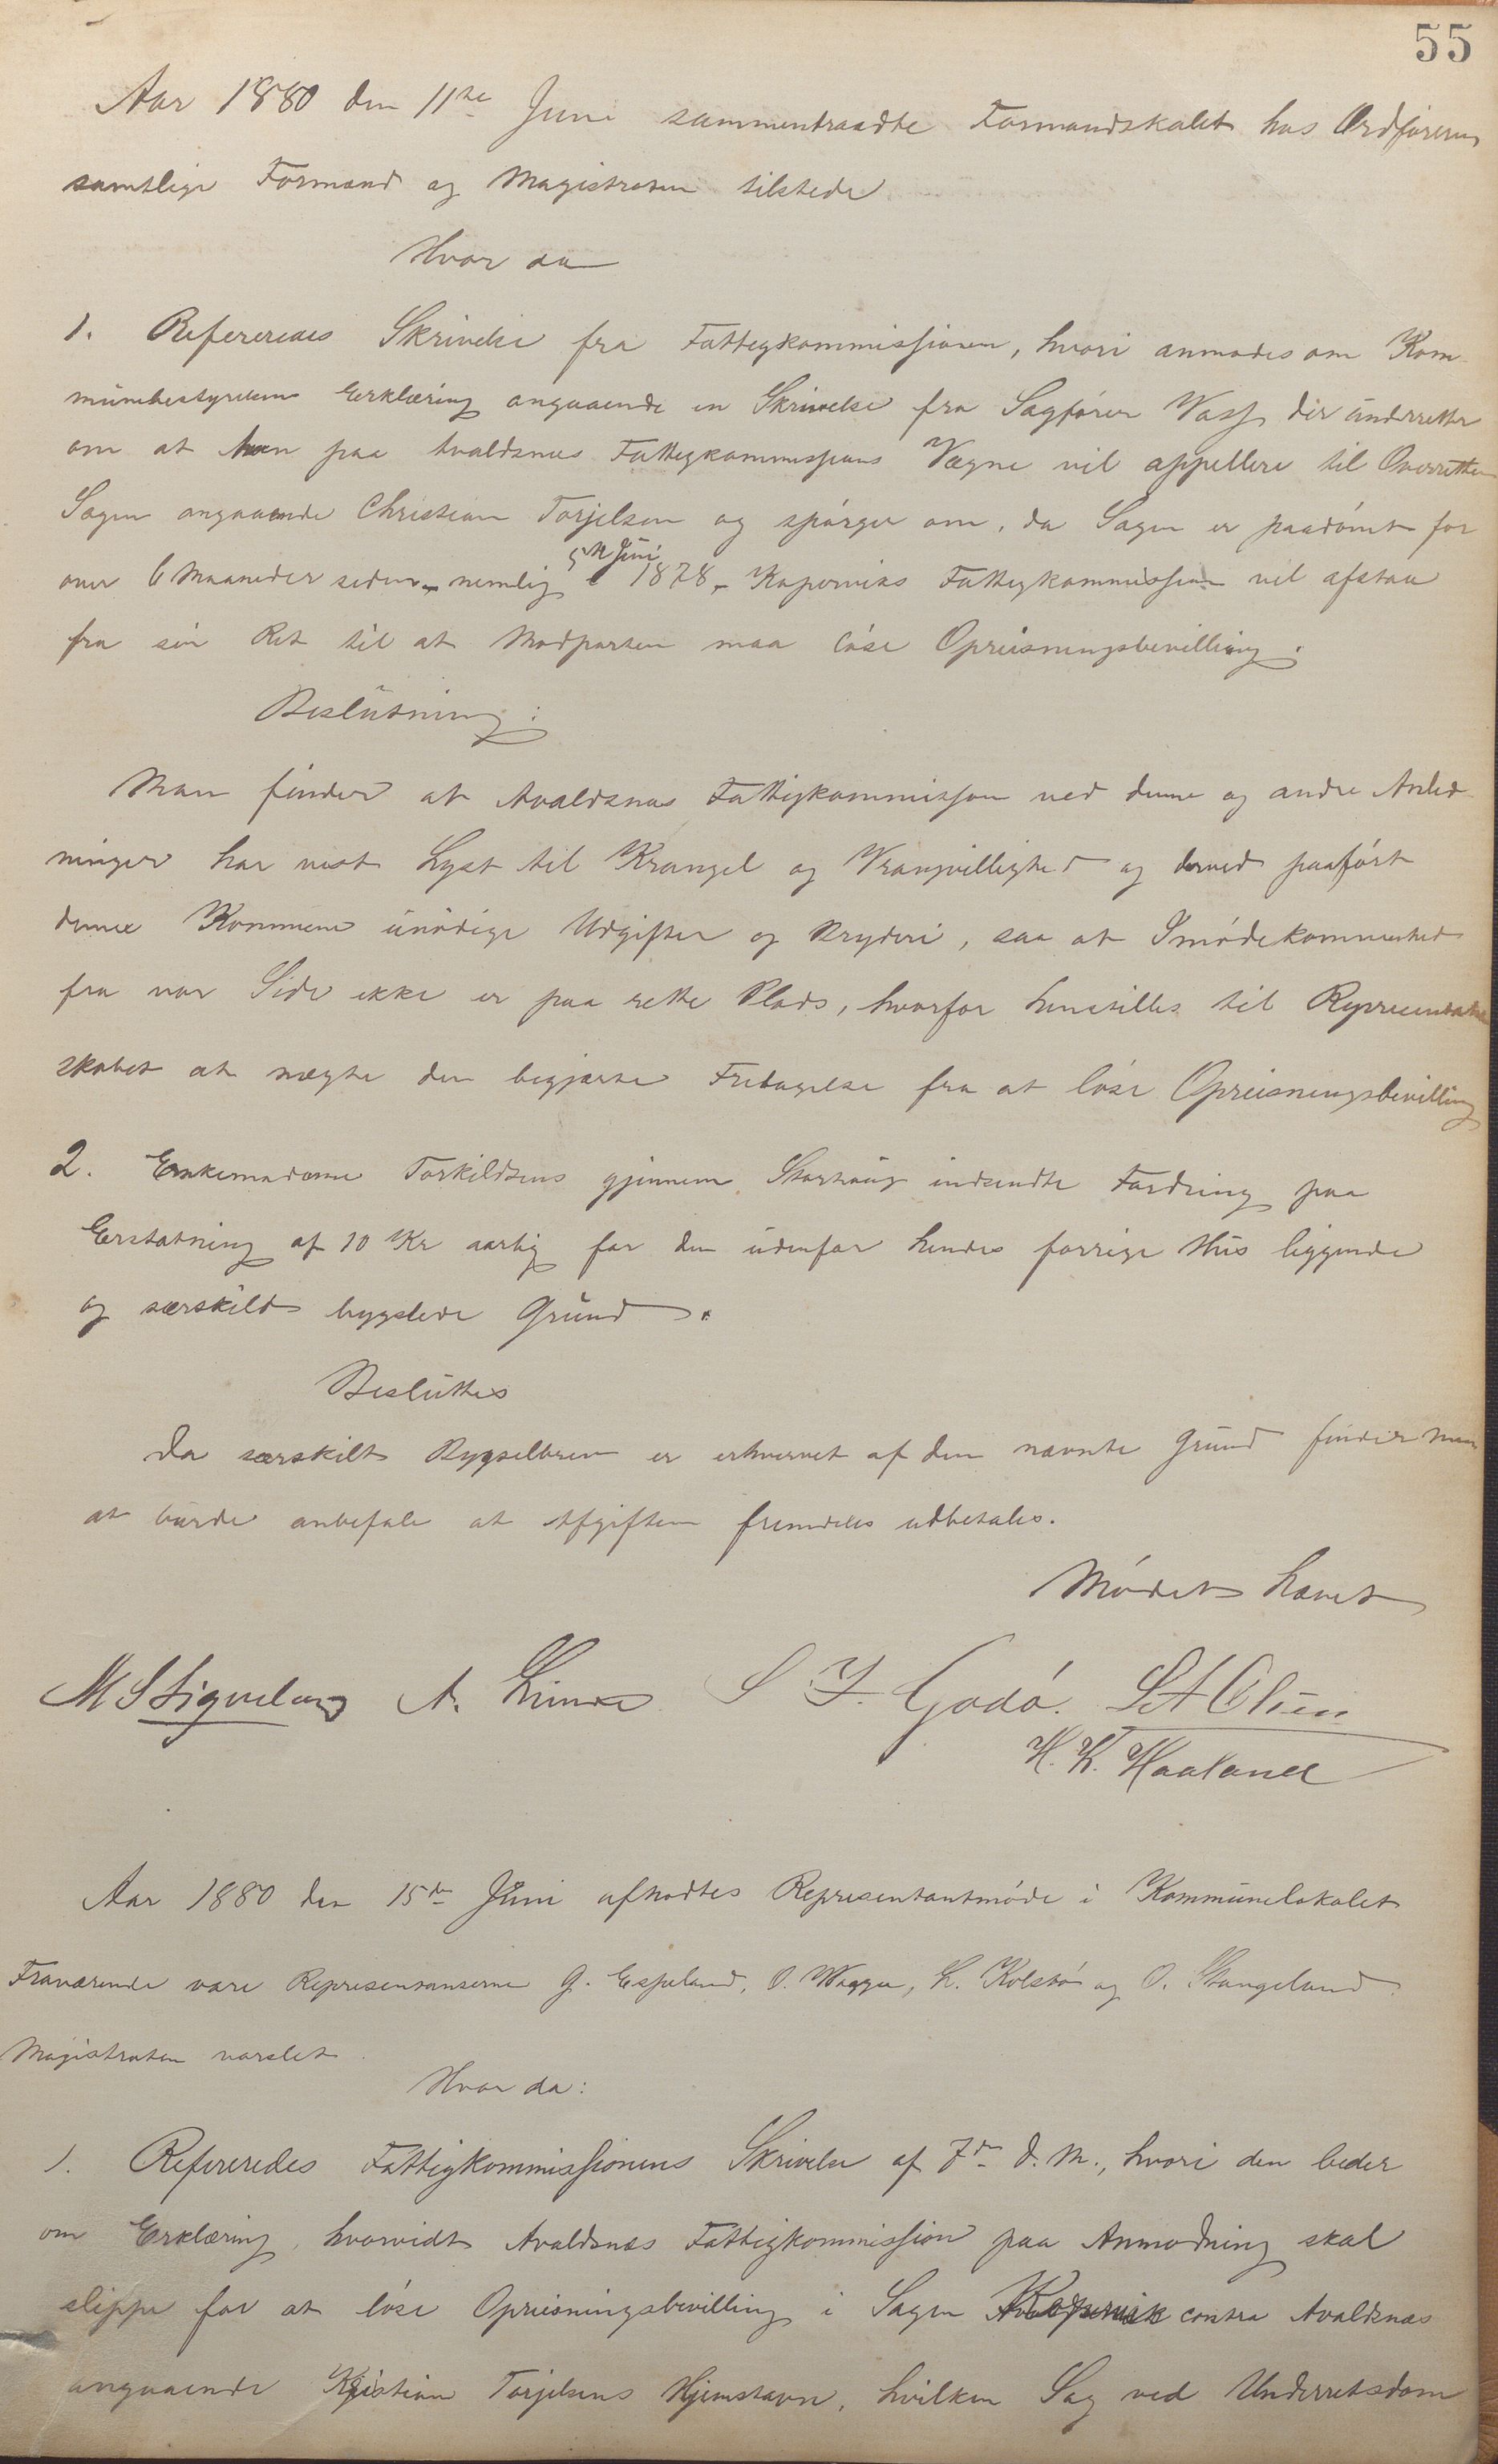 55
Aar 1880 den 11te Juni sammentraadte Formandskabet hos Ordføreren
samtlige Formænd og Magistraten tilstede
Hvor da
1. Refereredes Skrivelse fra Fattigkommissionen, hvori anmodes om Kom-
munebestyrelsens Erklæring angaaende en Skrivelse fra Sagfører Vass, der underretter
om at han paa Avaldsnes Fattigkommissions Vegne vil appellere til Overretten
Sagen angaaende Christian Torjelsen og spørger om, da Sagen er paadømt for
5te Juni
over 6 Maaneder siden, nemlig 1878, Koperviks Fattigkommission vil afstaa
fra sin Ret til at Modparten maa løse Opreisningsbevilling.
Beslutning:
Man finder at Avaldsnes Fattigkommission ved denne og andre Anled-
ninger har vist Lyst til Krangel og Vrangvillighed og derved paaført
denne Kommune unødige Udgifter og Bryderi, saa at Imødekommenhed
fra vor Side ikke er paa rette Plads, hvorfor henstilles til Repræsentant
skabet at nægte den begjærte Fritagelse fra at løse Opreisningsbevilling
2. Enkemadame Torkildsens gjennem Stortings indsendte Fordring paa
Erstatning af 10 Kr aarlig for den udenfor hendes forrige Hus liggende
og særskildt bygslede Grund.
Besluttes
Da særskilt Bygselbrev er erhvervet af den nævnte Grund finder man
at burde anbefale at Afgiften fremdeles udbetales.
Mødet hævet
M S Liguelsen A. Limde S J. Godø. S A Olsen
H. K. Haaland
Aar 1880 den 15de Juni afholdtes Representantmøde i Kommunelokalet
Fraværende vare Representanterne G. Espeland, O. Wagge, L. Kolstø og O. Stangeland.
Magistraten varslet.
Hvor da:
1. Refereredes Fattigkommissionens Skrivelse af 7de d. M., hvori den beder
om Erklæring, hvorvidt Avaldsnæs Fattigkommission paa Anmodning skal
slippe for at løse Opreisningsbevilling i Sagen Kopervik contra Avaldsnæs
angaaende Kristian Torjelsens Hjemstavn, hvilken Sag ved Underretsdom